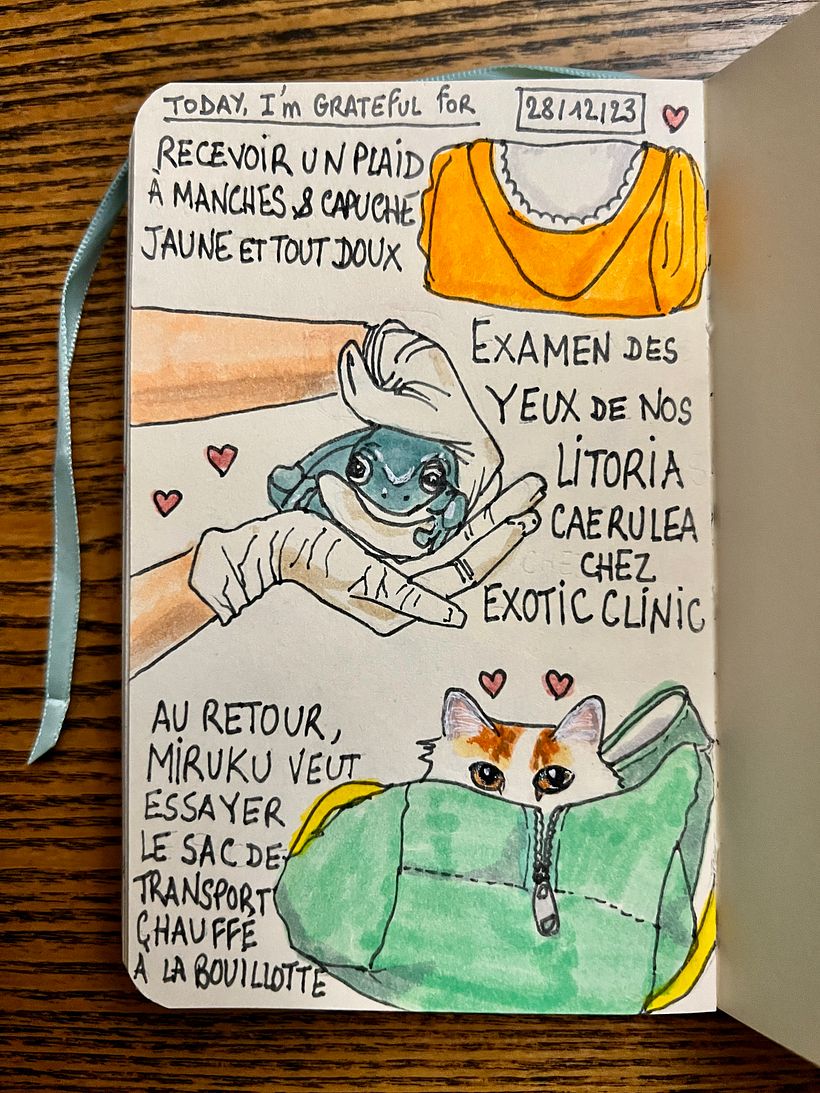 TODAY, I'm GRATEFUL FOR 28/12/23
RECEVOIR UN PLAID
À MANCHES & CAPUCHE
JAUNE ET TOUT DOUX
EXAMEN DES
YEUX DE NOS
LITORIA
CAERULEA
CHEZ
EXOTIC CLINIC
AU RETOUR,
MIRUKU VEUT
ESSAYER
LE SAC DE
TRANSPORT
CHAUFFÉ
À LA BOUILLOTTE